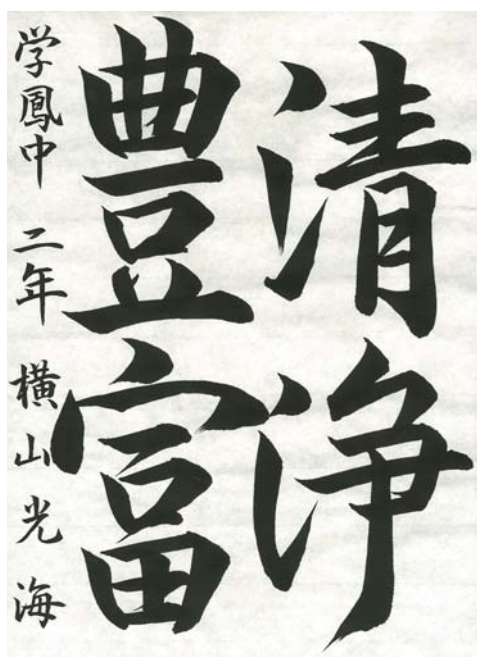 清浄
豊富
学鳳中 二年 横山光海